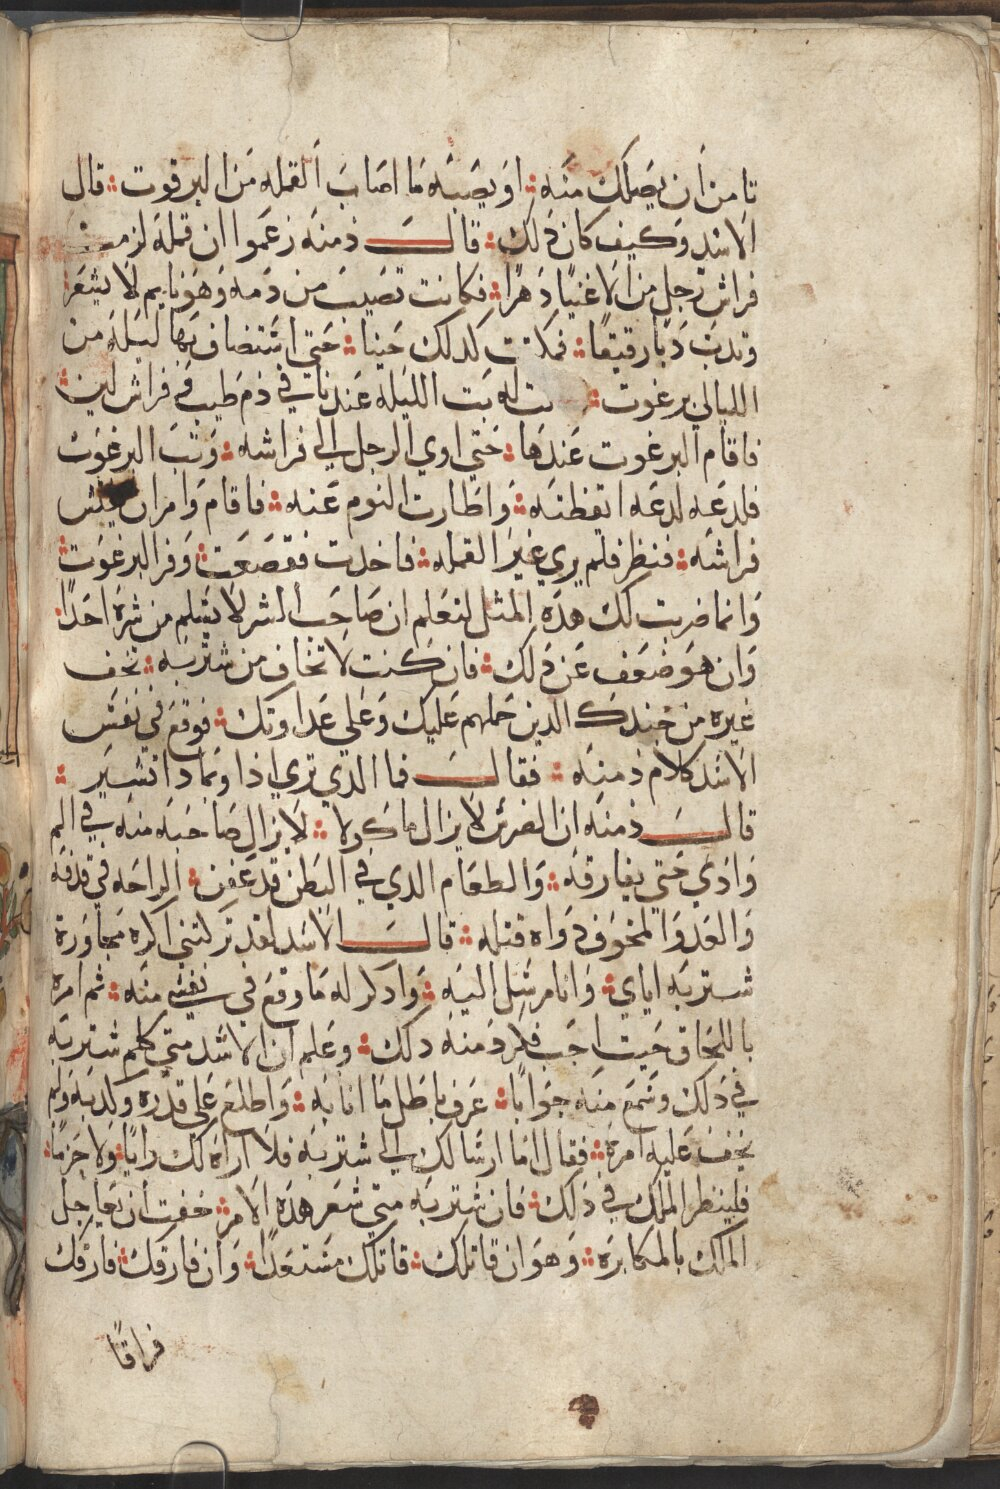 تامن أن يصلك منه ؞ او يصيبه ما اصاب القمله من البرغوت ؞ قال
الاسد وكيف كان ذلك ؞ قالـــــ دمنه زعموا ان قملة لزمت
فراش رجل من الاغنيا دهرا ؞ فكانت تصيب من دمه وهو نايم لا يشعر
وتدب دبا رقيقا ؞ فمكتت كدلك حينا ؞ حتي استضاف بها ليله من
الليالي برغوت ؞ ت له بت الليله عندنا في دم طيب وفراش لين ؞
فاقام البرغوت عندها ؞ حتي اوي الرجل الي فراشه ؞ وتب البرغوت
فلدعه لدعه ايقظته ؞ واطارت النوم عنه ؞ فاقام وامر ان يفتش
فراشه ؞ فنظر فلم يري غير القمله ؞ فاخدت فقصعت ؞ وفر البرغوت ؞
وانما ضربت لك هده المثل لتعلم ان صاحب الشر لا يسلم من شره احدا ؞
وان هو ضعف عن دلك ؞ فان كنت لا تخاف من شتربه ؞ تخف
غيره من جندك الدين حملهم عليك وعلي عداوتك ؞ فوقع في نفس
الاسد كلام دمنه ؞ فقالـــــ فما الدي تري اذا وبمادا تشير ؞
قالـــــ دمنه ان الضرس لا يزال ماكولا ؞ لا يزال صاحبه منه في الم
وادي حتي يفارقه ؞ والطعام الدي في البطن قد عفن ؞ الراحه في قدفه
والعدو المخوف دواه قتله ؞ قالـــــ الاسد لقد تركتني اكره مجاورة
شتربه اياي ؞ وانا مرسل اليه ؞ وادكر له ما وقع في نفسي منه ؞ ثم امره
باللحاق حيت احب فكره دمنه دلك ؞ وعلم ان الاسد متي كلم شتربه
في دلك وسمع منه جوابا ؞ عرف باطل ما اتا به ؞ واطلع علي قدره وكدبه ولم
يخف عليه امره ؞ فقال اما ارسالك الي شتربه فلا اراه لك رايا ؞ ولا حزما ؞
فلينظر الملك في دلك ؞ فان شتربه متي شعر هده الامر ؞ خفت أن يعاجل
الملك بالمكابره ؞ وهو ان قاتلك ؞ قاتلك مستعدا ؞ وان فارقك ؞ فارقك
فراقا